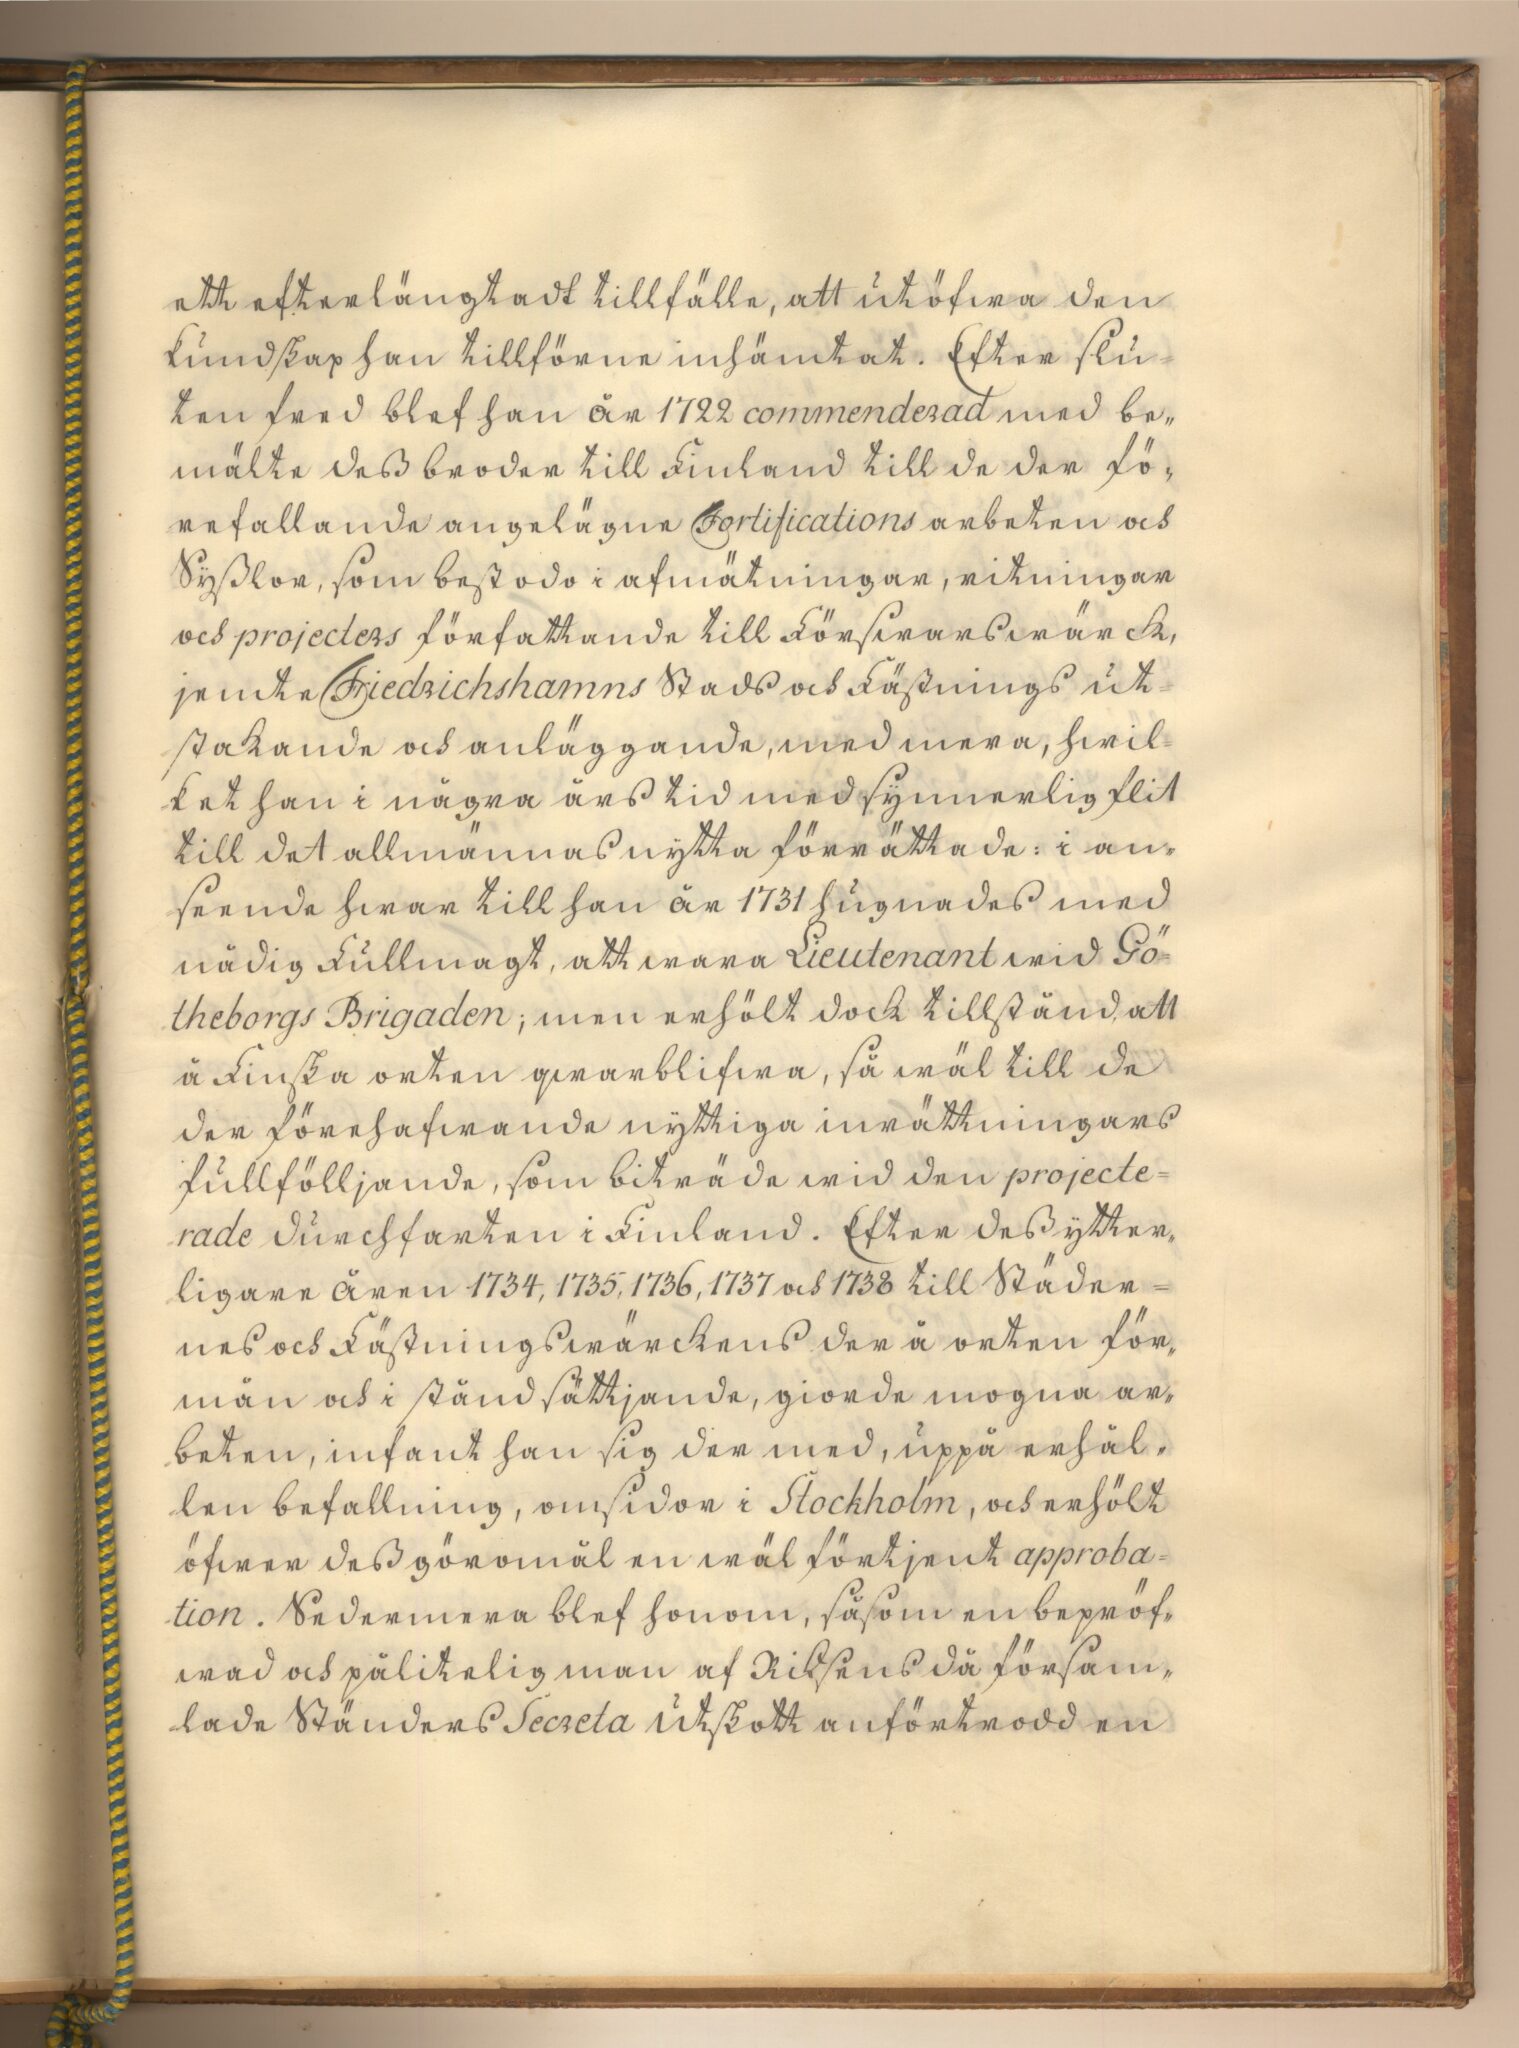 ett efterlängtadt tillfälle, att utöfwa den
kundskap han tillförne inhämtat. Efter slu-
ten fred blef han år 1722 commenderad med be-
mälte deß broder till Finland till de der fö-
refallande angelägne Fortifications arbeten och
Syßlor, som bestodo i afmätningar, ritningar
och projecters författande till Försvarswärck,
jemte Friedrichshamns Stads och Fästnings ut-
stakande och anläggande, med mera, hwil-
ket han i några års tid med synnerlig flit
till det allmännas nytta förrättade: i an-
seende hwar till han år 1731 hugnades med
nådig Fullmagt, att wara Lieutenant wid Gö-
theborgs Brigaden; men erhölt dock tillstånd, att
å Finska orten qwarblifwa, så wäl till de
der förehafwande nyttiga inrättningars
fullfölljande, som biträde wid den projecte-
rade durchfarten i Finland. Efter deß ytter-
ligare åren 1734, 1735, 1736, 1737 och 1738 till Städer-
nes och Fästningswärckens der å orten för-
mån och i stånd sättjande, giorde mogna ar-
beten, infant han sig der med, uppå erhål-
len befallning, omsidor i Stockholm, och erhölt
öfwer deß göromål en wäl förtjent approba-
tion. Sedermera blef honom, såsom en bepröf-
wad och pålitelig man af Riksens då försam-
lade Ständers Secreta Utskott anförtrodd en